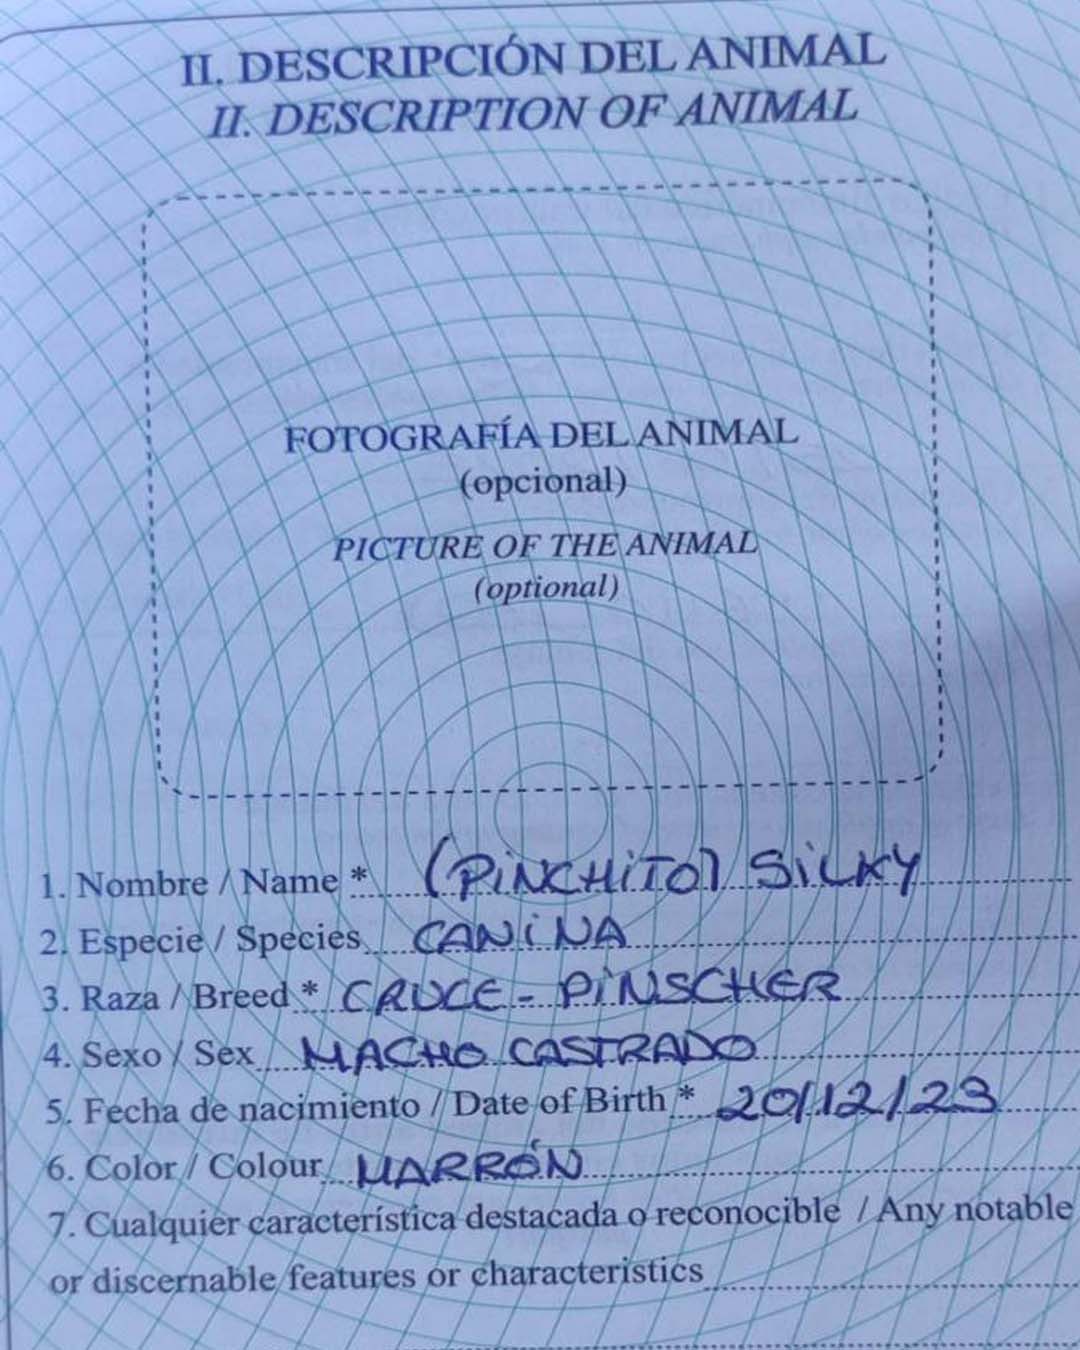 II. DESCRIPCIÓN DEL ANIMAL
II. DESCRIPTION OF ANIMAL
FOTOGRAFÍA DEL ANIMAL
(opcional)
PICTURE OF THE ANIMAL
(optional)
1. Nombre / Name * (PiNCHiTO) SiLKY
2. Especie / Species CANiNA
3. Raza / Breed * CRUCE - PiNSCHER
4. Sexo / Sex MACHO CASTRADO
5. Fecha de nacimiento / Date of Birth * 20/12/23
6. Color / Colour MARRÓN
7. Cualquier característica destacada o reconocible / Any notable
or discernable features or characteristics